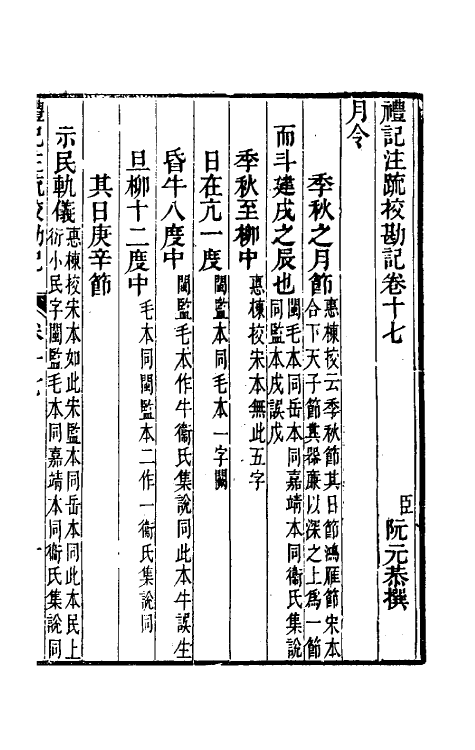 禮記注疏校勘記卷十七
臣阮元恭撰
月令
季秋之月節
惠棟挍云季秋節其日節鴻雁節宋本
合下天子節其器廉以深之上爲一節
而斗建戌之辰也
閩毛本同岳本同嘉靖本同衞氏集說
同監本戌誤戊
季秋至柳中
惠棟挍宋本無此五字
日在亢一度
閩監本同毛本一字闕
昏牛八度中
閩監毛本作牛衞氏集說同此本牛誤生
旦柳十二度中
毛本同閩監本二作一衞氏集說同
其日庚辛節
示民軌儀
惠棟挍宋本如此宋監本同岳本同此本民上
衍小民字閩監毛本同嘉靖本同衞氏集說同
禮記注疏校勘記
卷十七
一